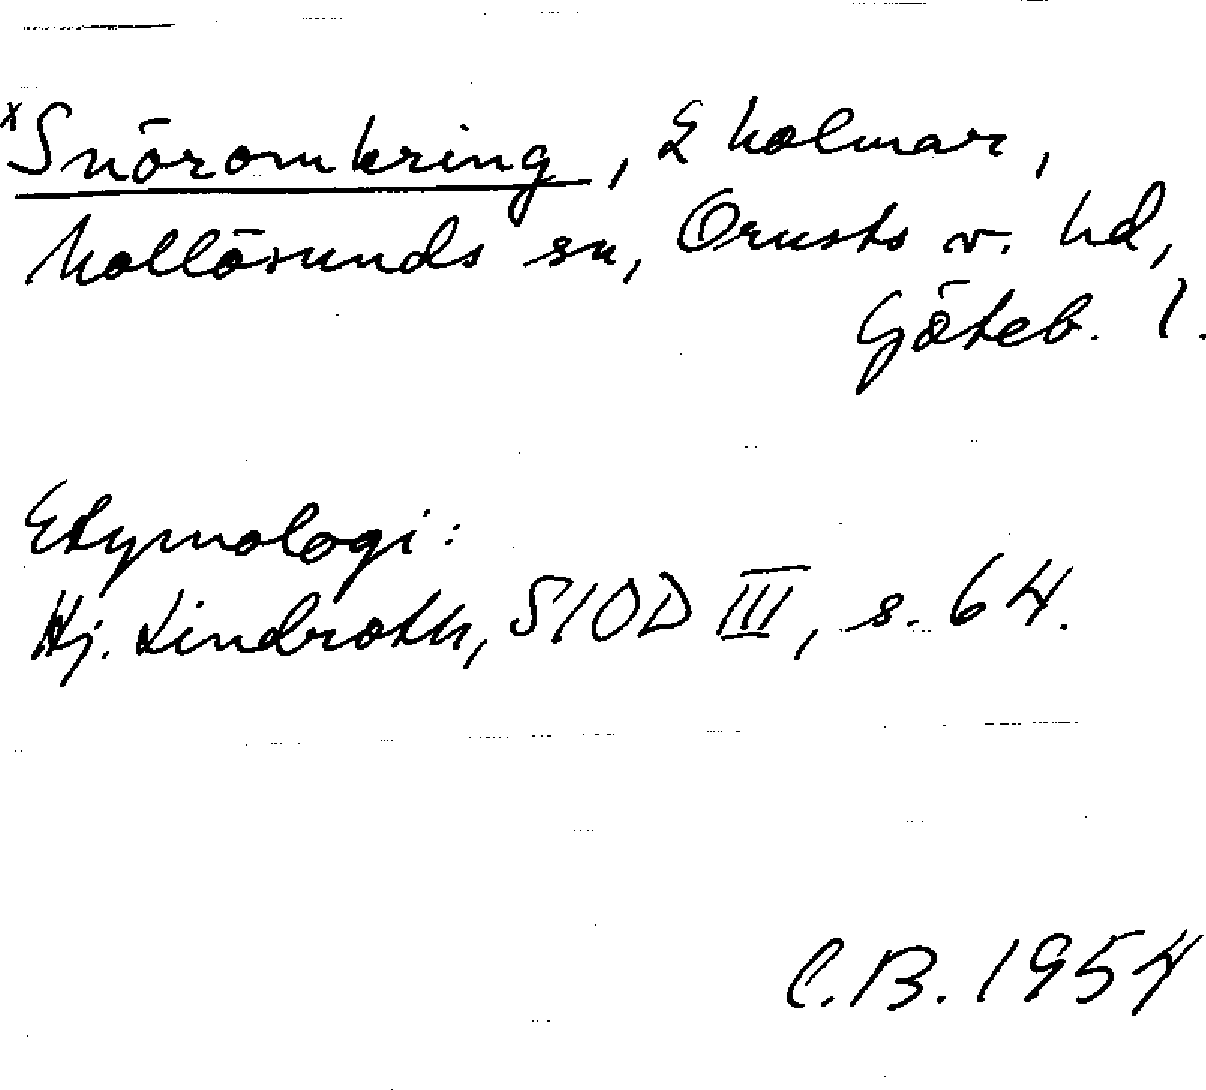 x Snöromkring, 2 holmar,
Mollösunds sn, Orusts v. hd,
Göteb. l.
Etymologi:
Hj. Lindroth, SIOD III, s. 64.
C.B. 1954